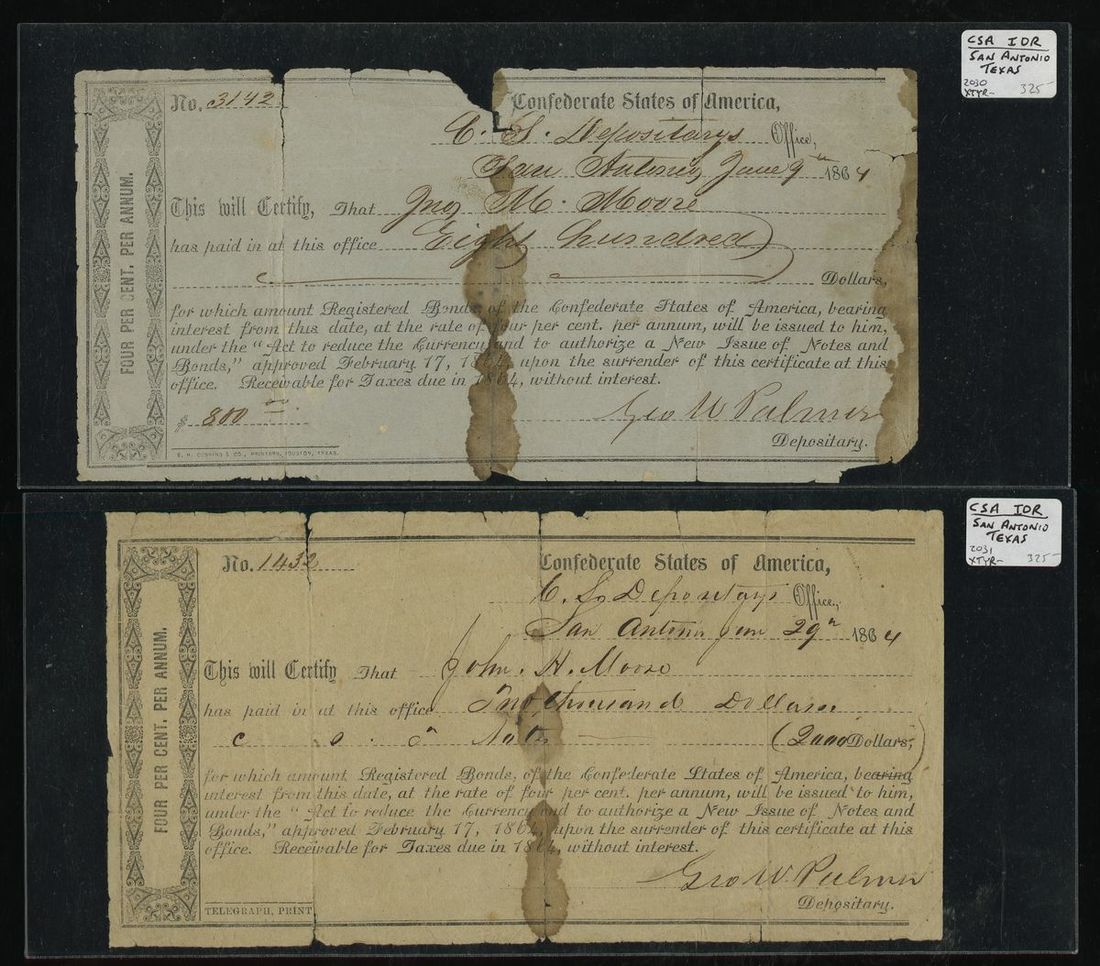 CSA IDR
SAN ANTONIO
TEXAS
2030
XTYR- 325
No. 3142 Confederate States of America,
C. S. Depositarys Office,
San Antonio, June 9th 1864
This will Certify, That Jno M. Moore
has paid in at this office Eight hundred
Dollars,
for which amount Registered Bonds of the Confederate States of America, bearing
interest from this date, at the rate of four per cent. per annum, will be issued to him,
under the "Act to reduce the Currency and to authorize a New Issue of Notes and
Bonds," approved February 17, 1864, upon the surrender of this certificate at this
office. Receivable for Taxes due in 1864, without interest.
$ 800 00 Geo W Palmer
Depositary.
E. H. CUSHING & CO., PRINTERS, HOUSTON, TEXAS.
FOUR PER CENT. PER ANNUM.
CSA IDR
SAN ANTONIO
TEXAS
2031
XTYR- 325-
No. 1432 Confederate States of America,
C. S. Depositarys Office,
San Antonio 29th 1864
This will Certify That John. H. Moore
has paid in at this office Two thousand Dollars
(2000 Dollars,)
for which amount Registered Bonds, of the Confederate States of America, bearing
interest from this date, at the rate of four per cent. per annum, will be issued to him,
under the "Act to reduce the Currency and to authorize a New Issue of Notes and
Bonds," approved February 17, 1864, upon the surrender of this certificate at this
office. Receivable for Taxes due in 1864, without interest.
Geo W Palmer
Depositary.
TELEGRAPH, PRINT
FOUR PER CENT. PER ANNUM.